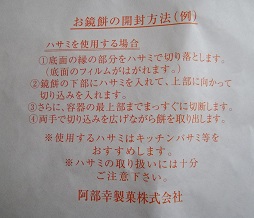 お鏡餅の開封方法(例)
ハサミを使用する場合
①底面の縁の部分をハサミで切り落とします。
(底面のフィルムがはがれます。)
②鏡餅の下部にハサミを入れて、上部に向かって
切り込みを入れます。
③さらに、容器の最上部までまっすぐに切断します。
④両手で切り込みを広げながら餅を取り出します。
※使用するハサミはキッチンバサミ等を
おすすめします。
※ハサミの取り扱いには十分
ご注意下さい。
阿部幸製菓株式会社